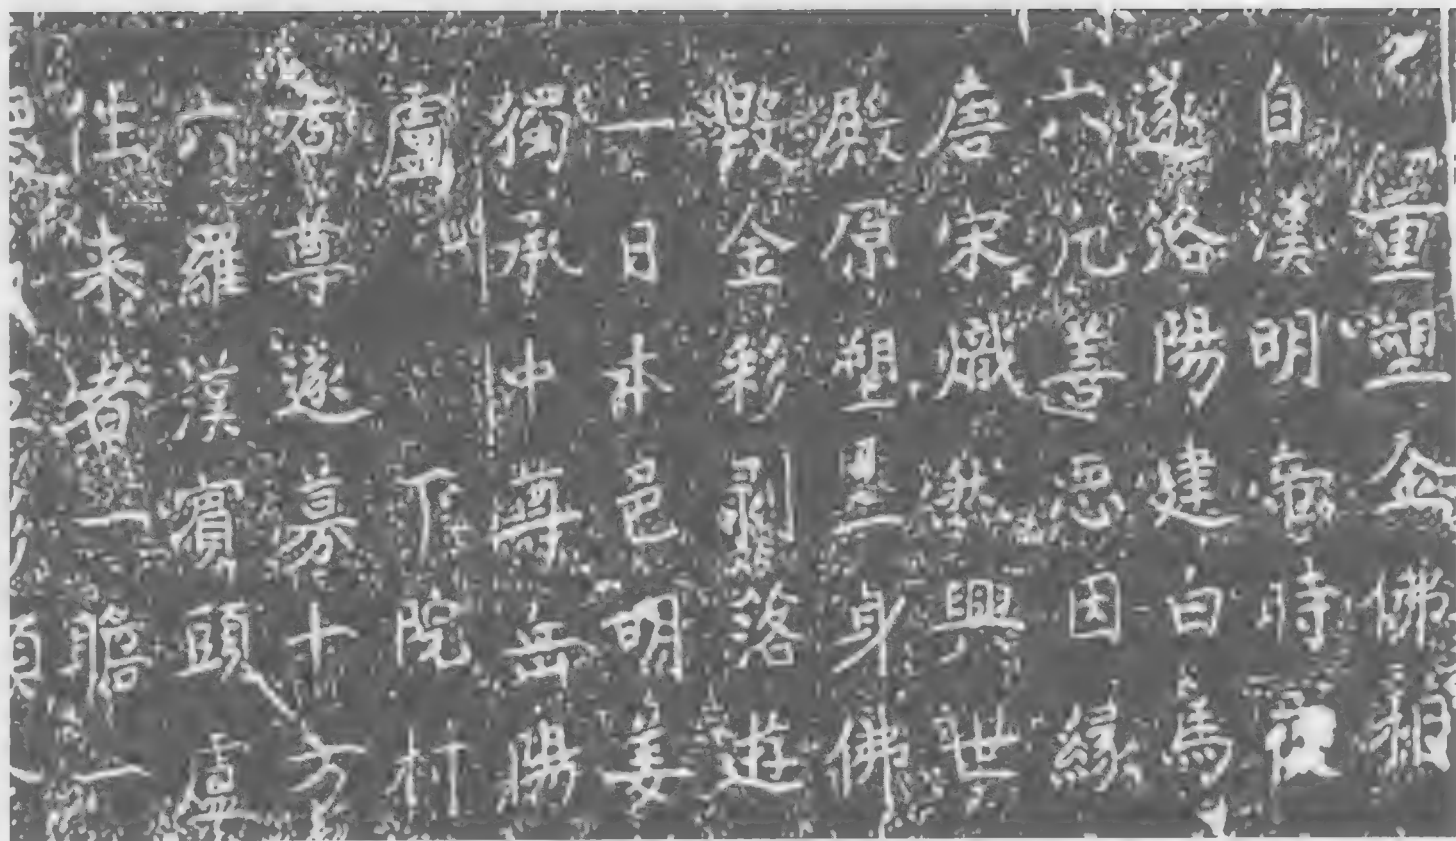 重塑金佛相
自漢明時
遂洛陽建白馬
六凡善惡因緣
唐宋熾興世
殿原塑三身佛
毀金彩剝落遊
一日本邑明姜
獨承中尊陽
盧下院村
尊遂募十方
六羅漢賓頭盧
往来者一瞻一